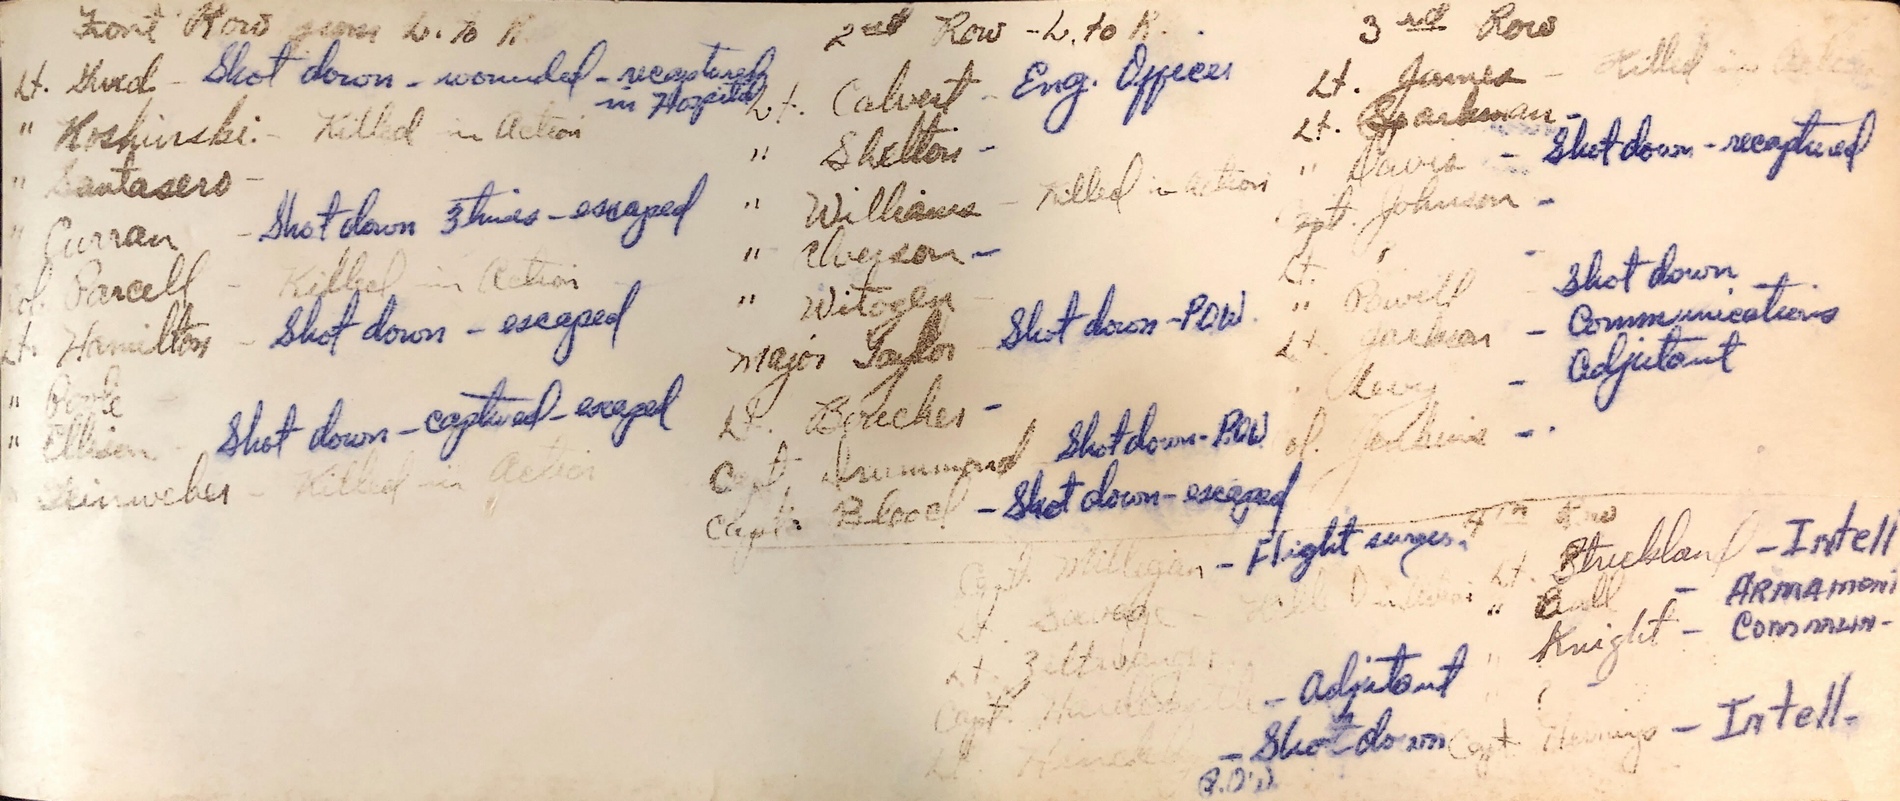 Front Row from L. to R.
Lt. Hurd - Shot down - wounded - recaptured
in Hospital
" Koshinski - Killed in Action
" Santasero -
" Curran - Shot down 3 times - escaped
Col. Parcell - Killed in Action
Lt. Hamilton - Shot down - escaped
" Poole -
" Ellison - Shot down - captured - escaped
Leinweber - Killed in Action
2nd Row - L. to R.
Lt. Calvert - Eng. Officer
" Shelton -
" Williams - Killed in Action
" Iverson -
" Witogen -
Major Taylor - Shot down - POW.
Lt. Boucher -
Capt. Drummond Shot down - P.O.W
Capt. Blood - Shot down - escaped
3rd Row
Lt. James - Killed in Action
Lt. Sparkman -
" Davis - Shot down - recaptured
Capt. Johnson -
Lt. -
" Powell - Shot down
Lt. Jackson - Communications
" Levy - Adjutant
Jenkins -
Capt. Milligan - Flight surgeon
Lt. Savage -
Lt.
Capt. - Adjutant
Lt. - Shot down
P.O.W
4th Row
Lt. Strickland - Intell
" Ball - ARMAMENT
" Knight - Commun-
" ?
Capt. - Intell-